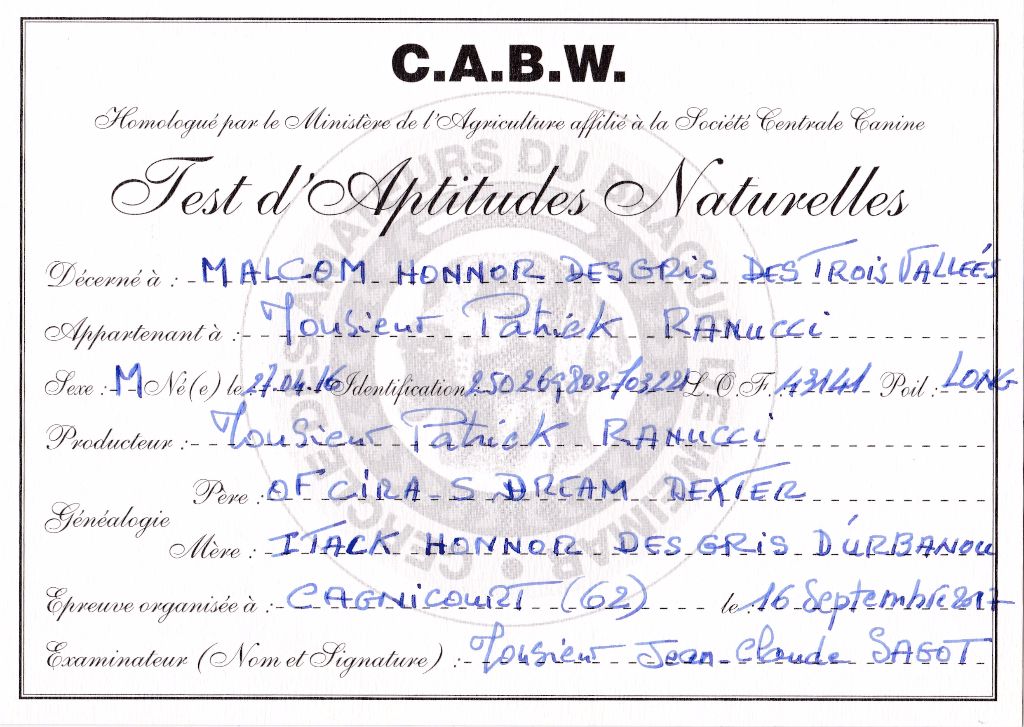 C.A.B.W.
Homologué par le Ministère de l'Agriculture affilié à la Société Centrale Canine
Test d'Aptitudes Naturelles
Décerné à : MALCOM HONNOR DES GRIS DES TROIS VALLEÉS
Appartenant à : Monsieur Patrick RANUCCI
Sexe : M Né(e) le 27.04.16 Identification 250269802703221 L.O.F. 43141 Poil : LONG
Producteur : Monsieur Patrick RANUCCI
Père : OF CIRA-S DREAM DEXTER
Généalogie
Mère : ITACK HONNOR DES GRIS D'URBANOU
Epreuve organisée à : CAGNICOURT (62) le : 16 Septembre 2017
Examinateur (Nom et Signature) : Monsieur Jean-Claude SAGOT
CERCLE DES AMATEURS DU BRAQUE DE WEIMAR